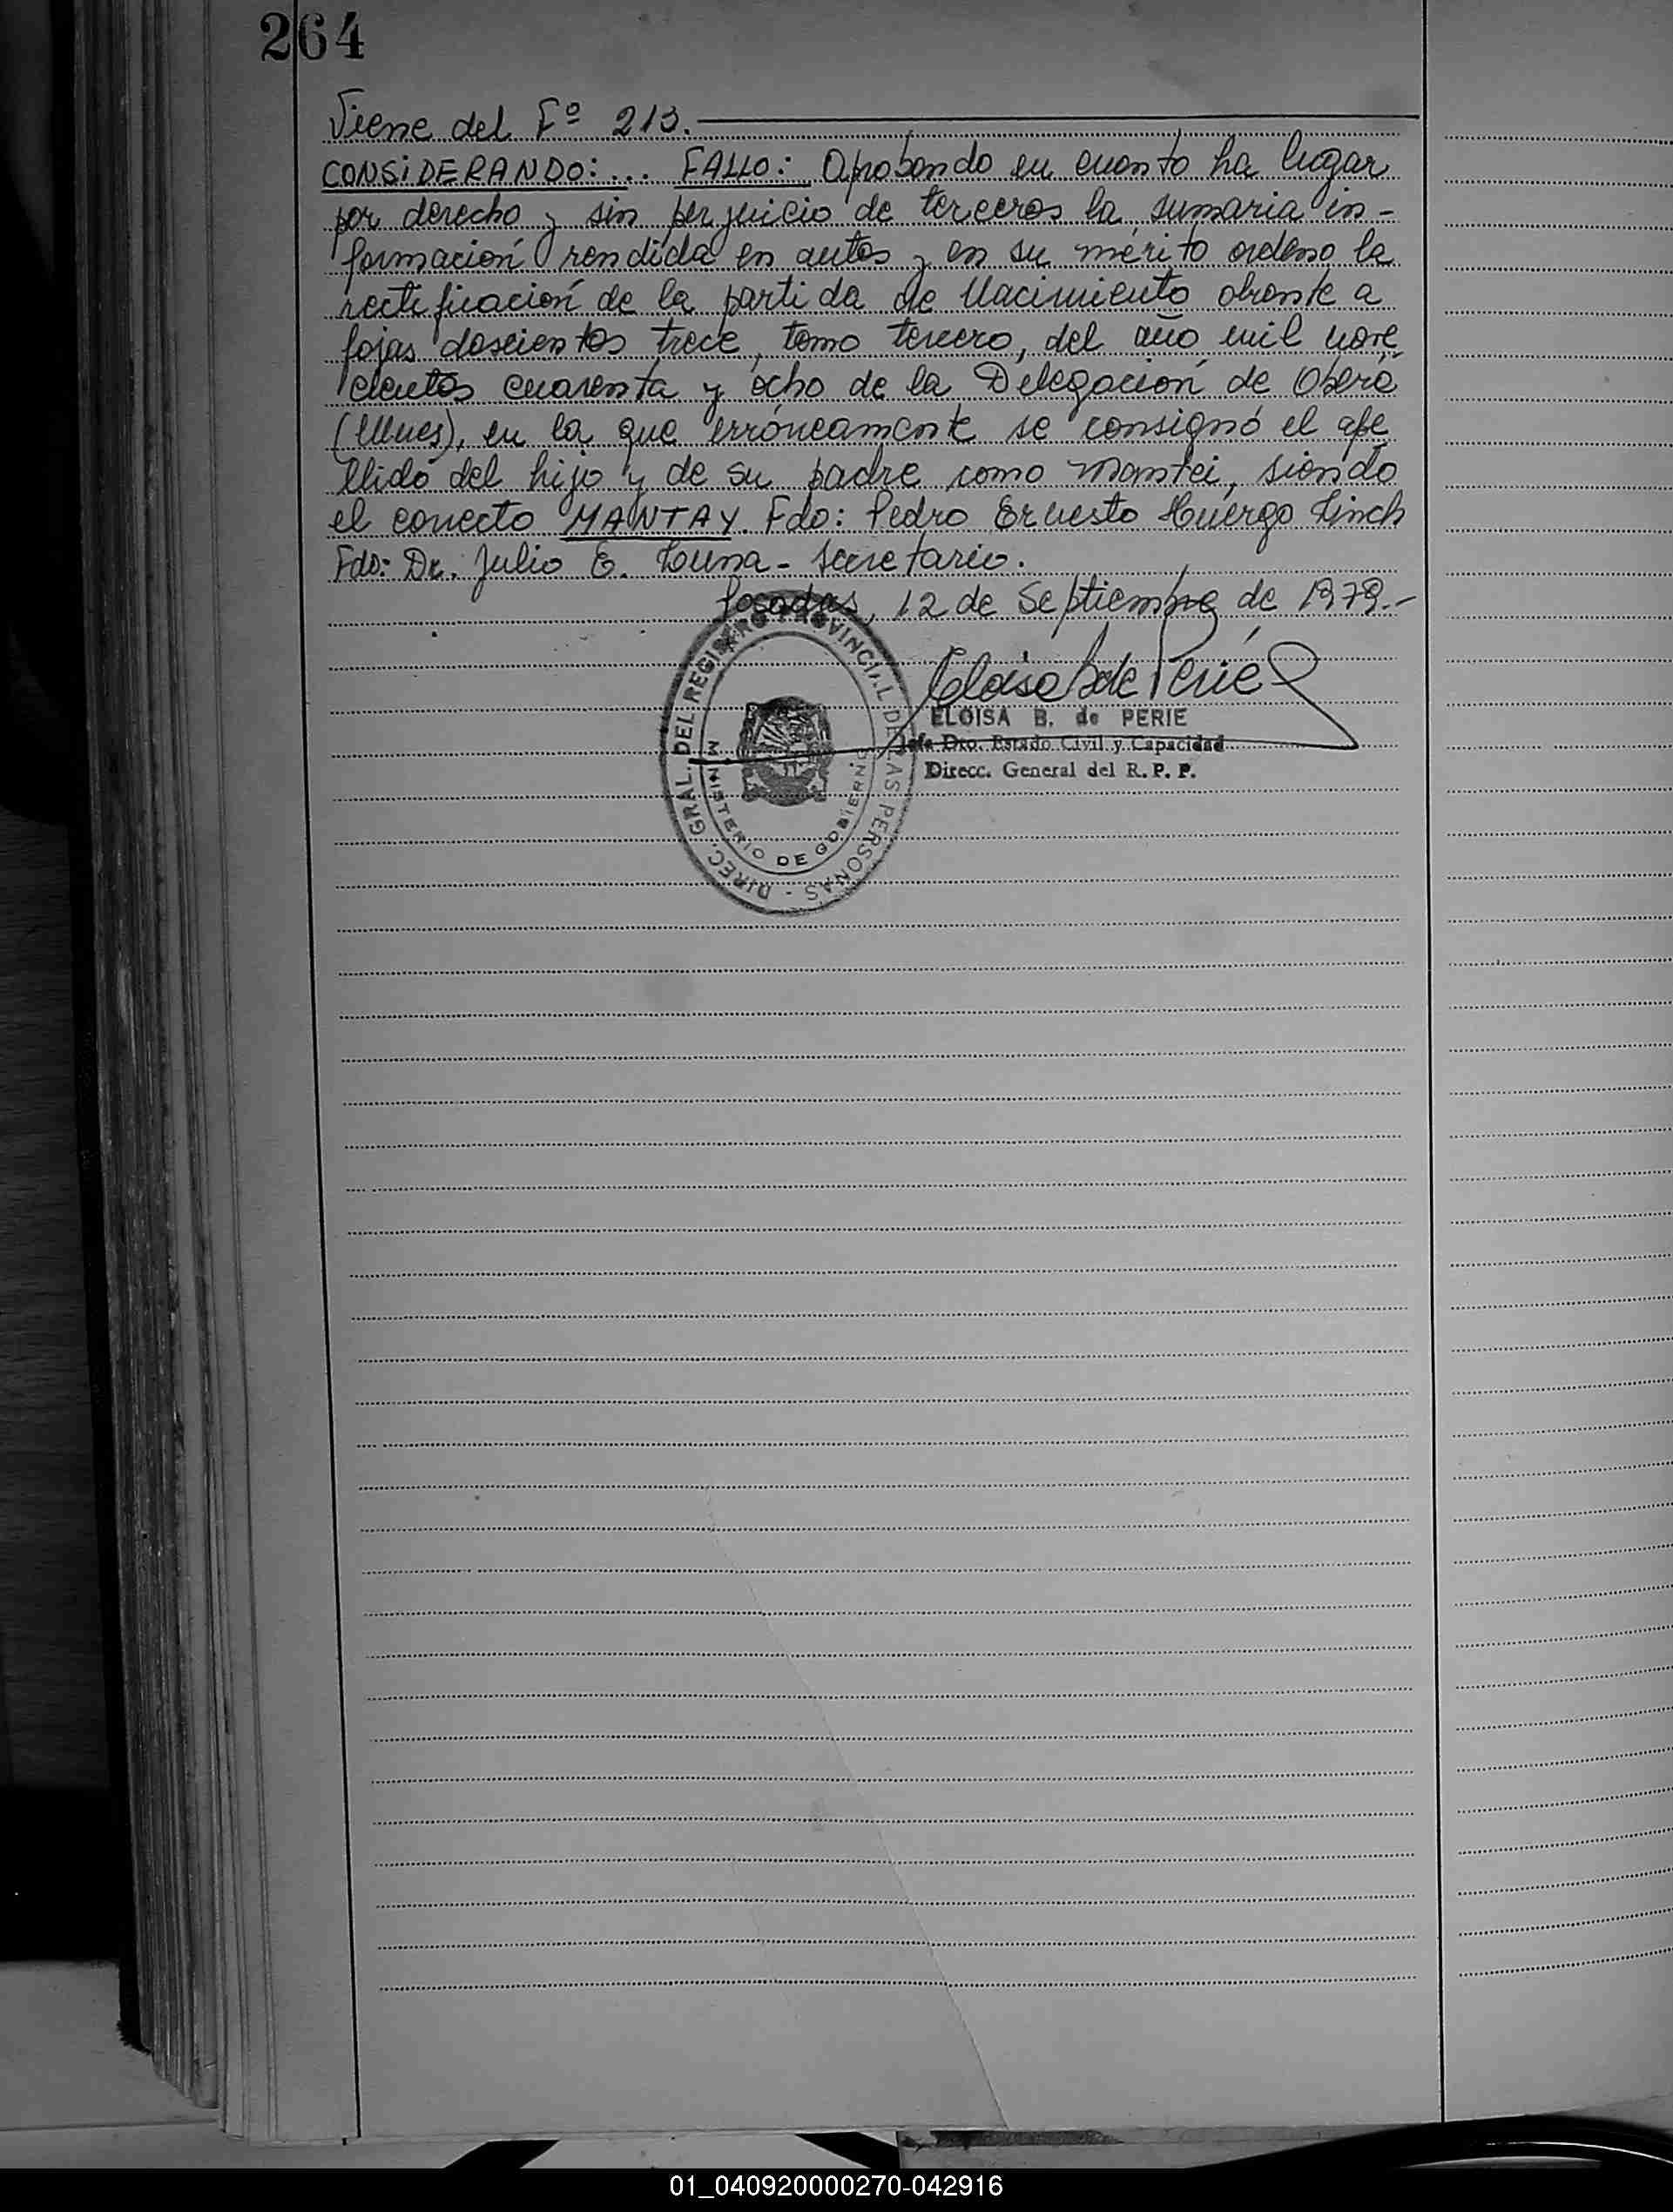 264
Viene del Fº 213.
CONSIDERANDO: ... FALLO: Aprobando en cuanto ha lugar
por derecho y sin perjuicio de terceros la sumaria in-
formación rendida en autos y en su mérito ordeno la
rectificación de la partida de Nacimiento obrante a
fojas doscientos trece, tomo tercero, del año mil nove
cientos cuarenta y ocho de la Delegación de Oberá
(Mnes), en la que erróneamente se consignó el ape
llido del hijo y de su padre como Mantei, siendo
el correcto MANTAY. Fdo: Pedro Ernesto Huergo Linch
Fdo: Dr. Julio E. Luna - Secretario.
Posadas, 12 de Septiembre de 1979.-
Eloisa B de Perié
ELOISA B. de PERIE
Jefe Dto. Estado Civil y Capacidad
Direcc. General del R. P. P.
DIREC. GRAL. DEL REGISTRO PROVINCIAL DE LAS PERSONAS -
MINISTERIO DE GOBIERNO
01_040920000270-042916